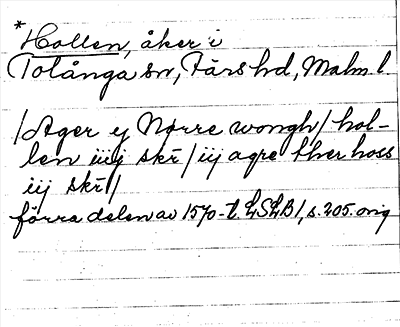 *
Hollen, åker i
Tolånga sn, Färs hd, Malm. l.
/Ager ij Nørre wongh/ hol-
len iiij skr̄ / iij agre ther hoss
iij skr̄ /
förra delen av 1570-t. LSLB 1, s. 205. orig